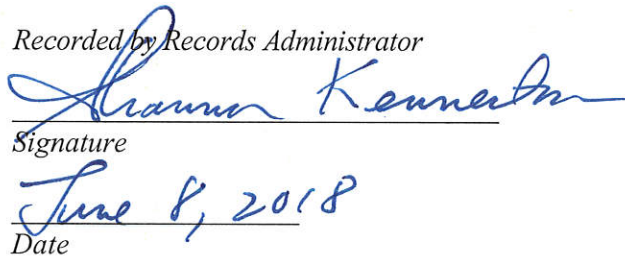 Recorded by Records Administrator
Shannon Kennerton
Signature
June 8, 2018
Date